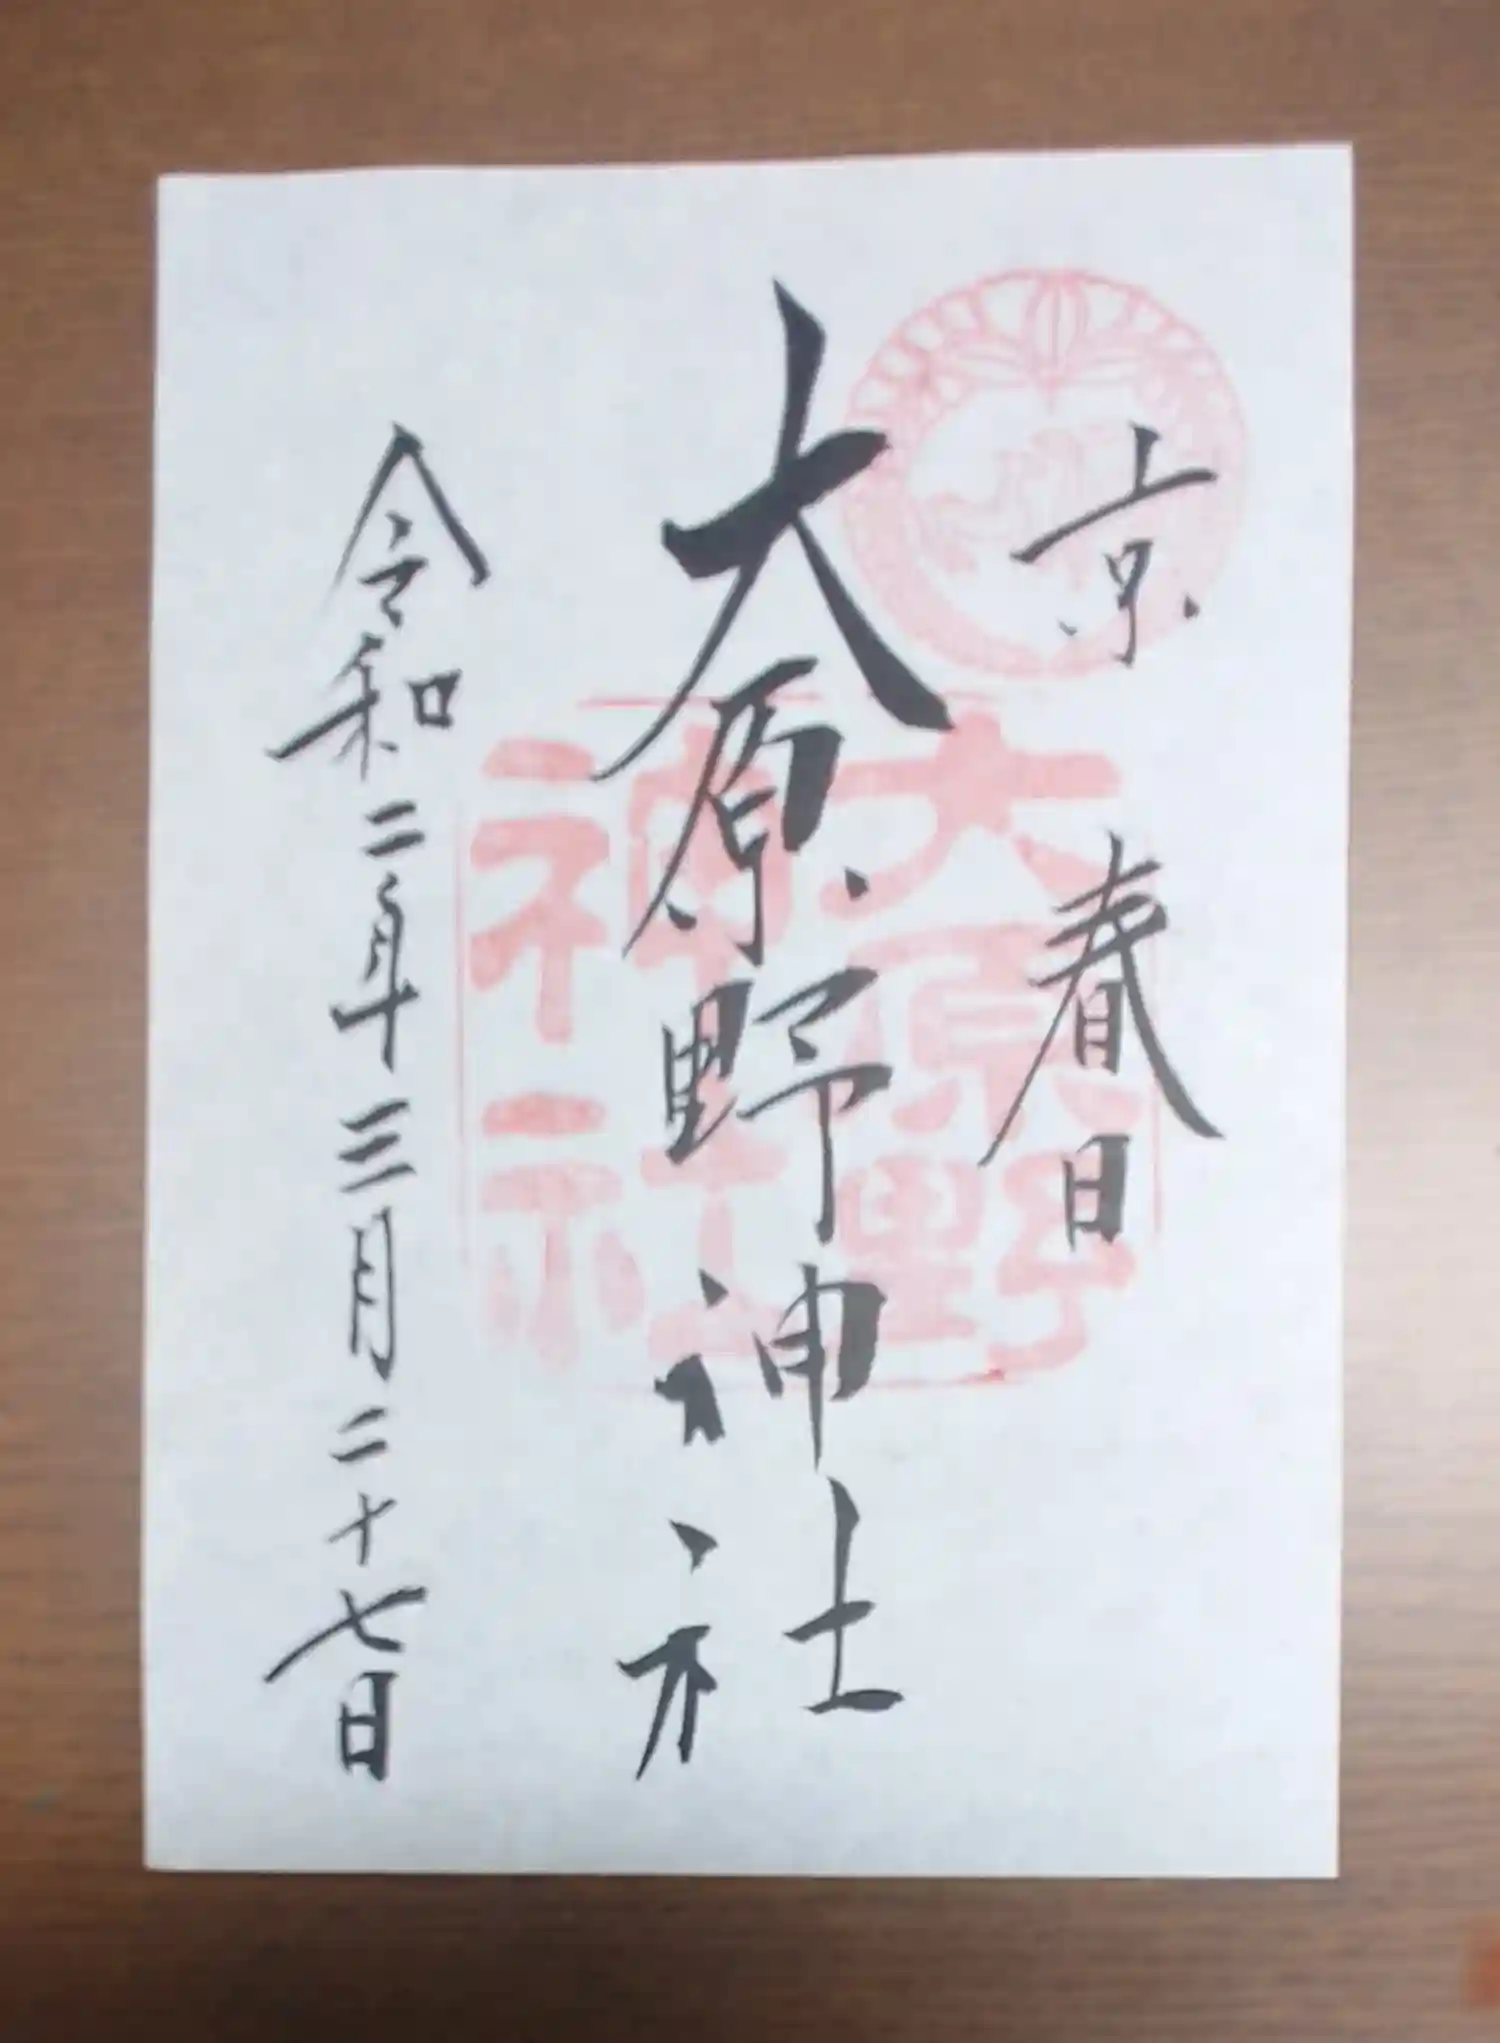 京春日
大原野神社
令和二年三月二十七日
大原野
神社